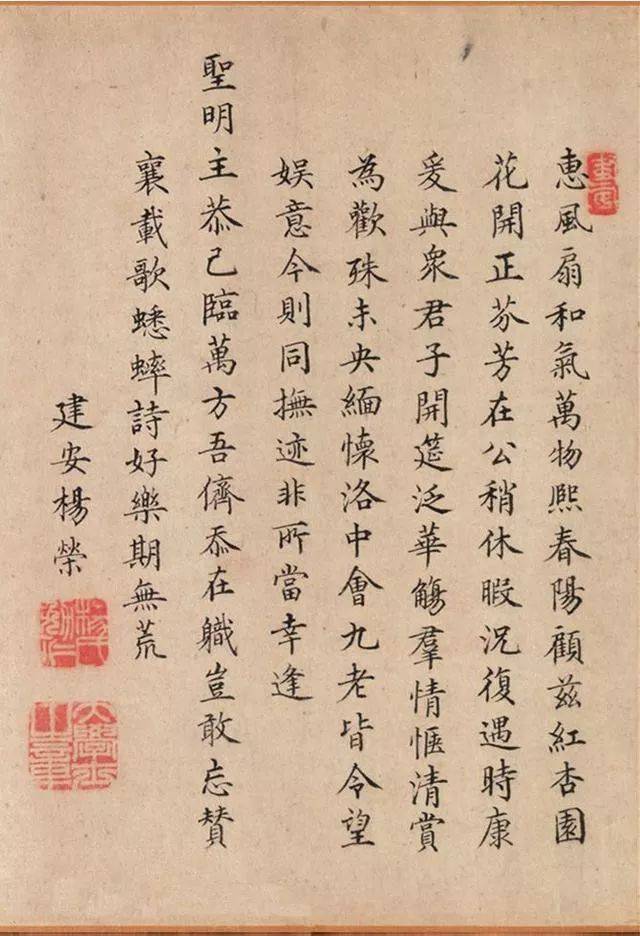 惠風扇和氣萬物熙春陽顧茲紅杏園
花開正芬芳在公稍休暇況復遇時康
爰與衆君子開筵泛華觴羣情愜清賞
為歡殊未央緬懷洛中會九老皆令望
娱意今則同撫迹非所當幸逢
聖明主恭己臨萬方吾儕忝在職豈敢忘賛
襄載歌蟋蟀詩好樂期無荒
建安楊榮